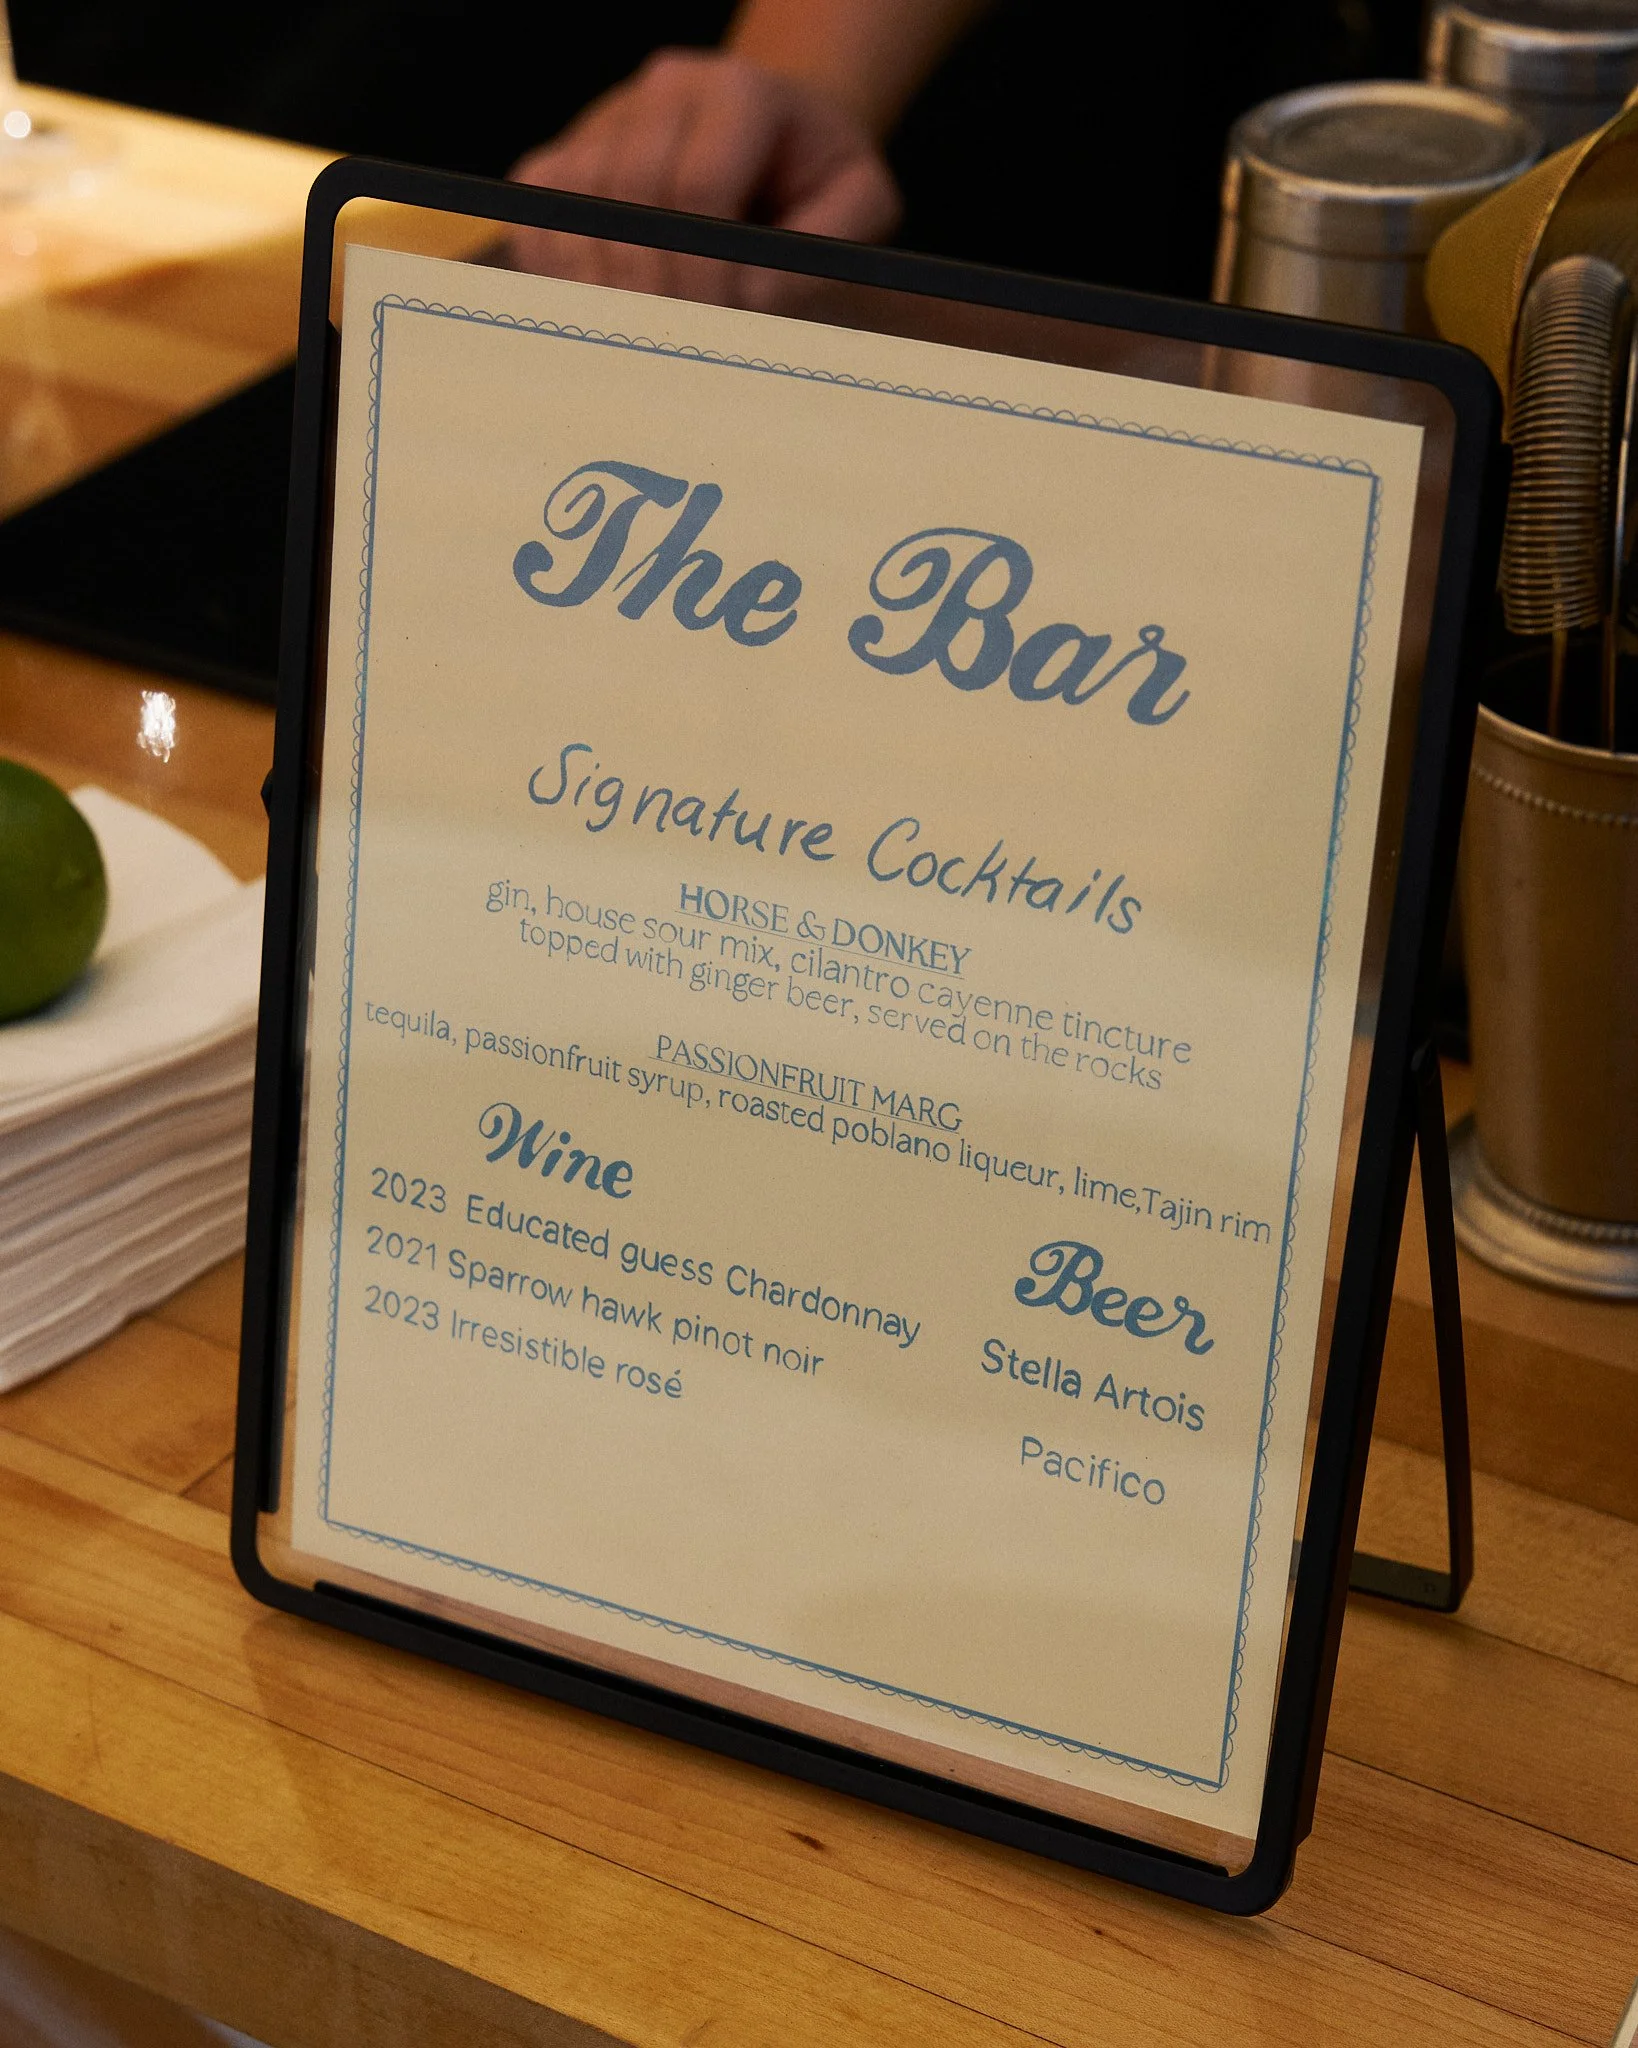 The Bar
Signature Cocktails
HORSE & DONKEY
gin, house sour mix, cilantro cayenne tincture
topped with ginger beer, served on the rocks
PASSIONFRUIT MARG
tequila, passionfruit syrup, roasted poblano liqueur, lime,Tajin rim
Wine
2023 Educated guess Chardonnay
2021 Sparrow hawk pinot noir
2023 Irresistible rosé
Beer
Stella Artois
Pacifico